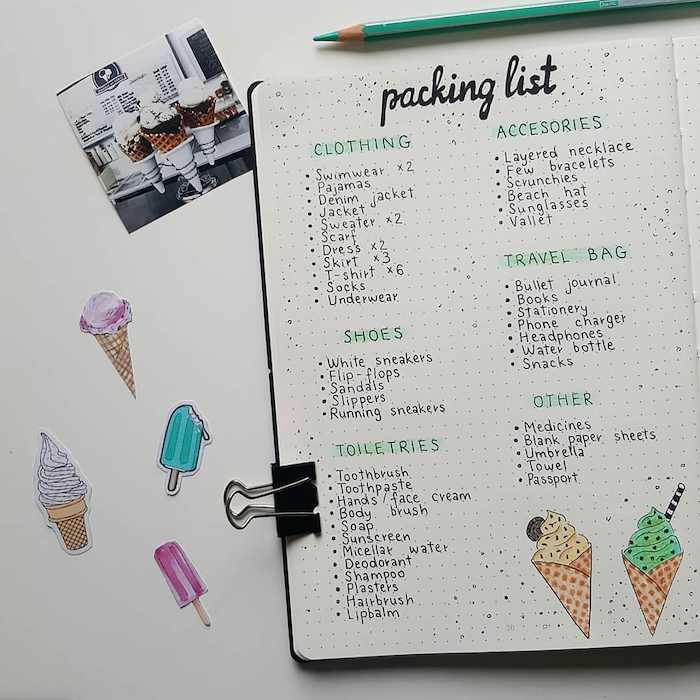 packing list
CLOTHING
• Swimwear x2
• Pajamas
• Denim jacket
• Jacket
• Sweater x2
• Scarf
• Dress x2
• Skirt x3
• T-shirt x6
• Socks
• Underwear
SHOES
• White sneakers
• Flip-flops
• Sandals
• Slippers
• Running sneakers
TOILETRIES
• Toothbrush
• Toothpaste
• Hands/face cream
• Body brush
• Soap
• Sunscreen
• Micellar water
• Deodorant
• Shampoo
• Plasters
• Hairbrush
• Lipbalm
ACCESORIES
• Layered necklace
• Few bracelets
• Scrunchies
• Beach hat
• Sunglasses
• Vallet
TRAVEL BAG
• Bullet journal
• Books
• Stationery
• Phone charger
• Headphones
• Water bottle
• Snacks
OTHER
• Medicines
• Blank paper sheets
• Umbrella
• Towel
• Passport
36